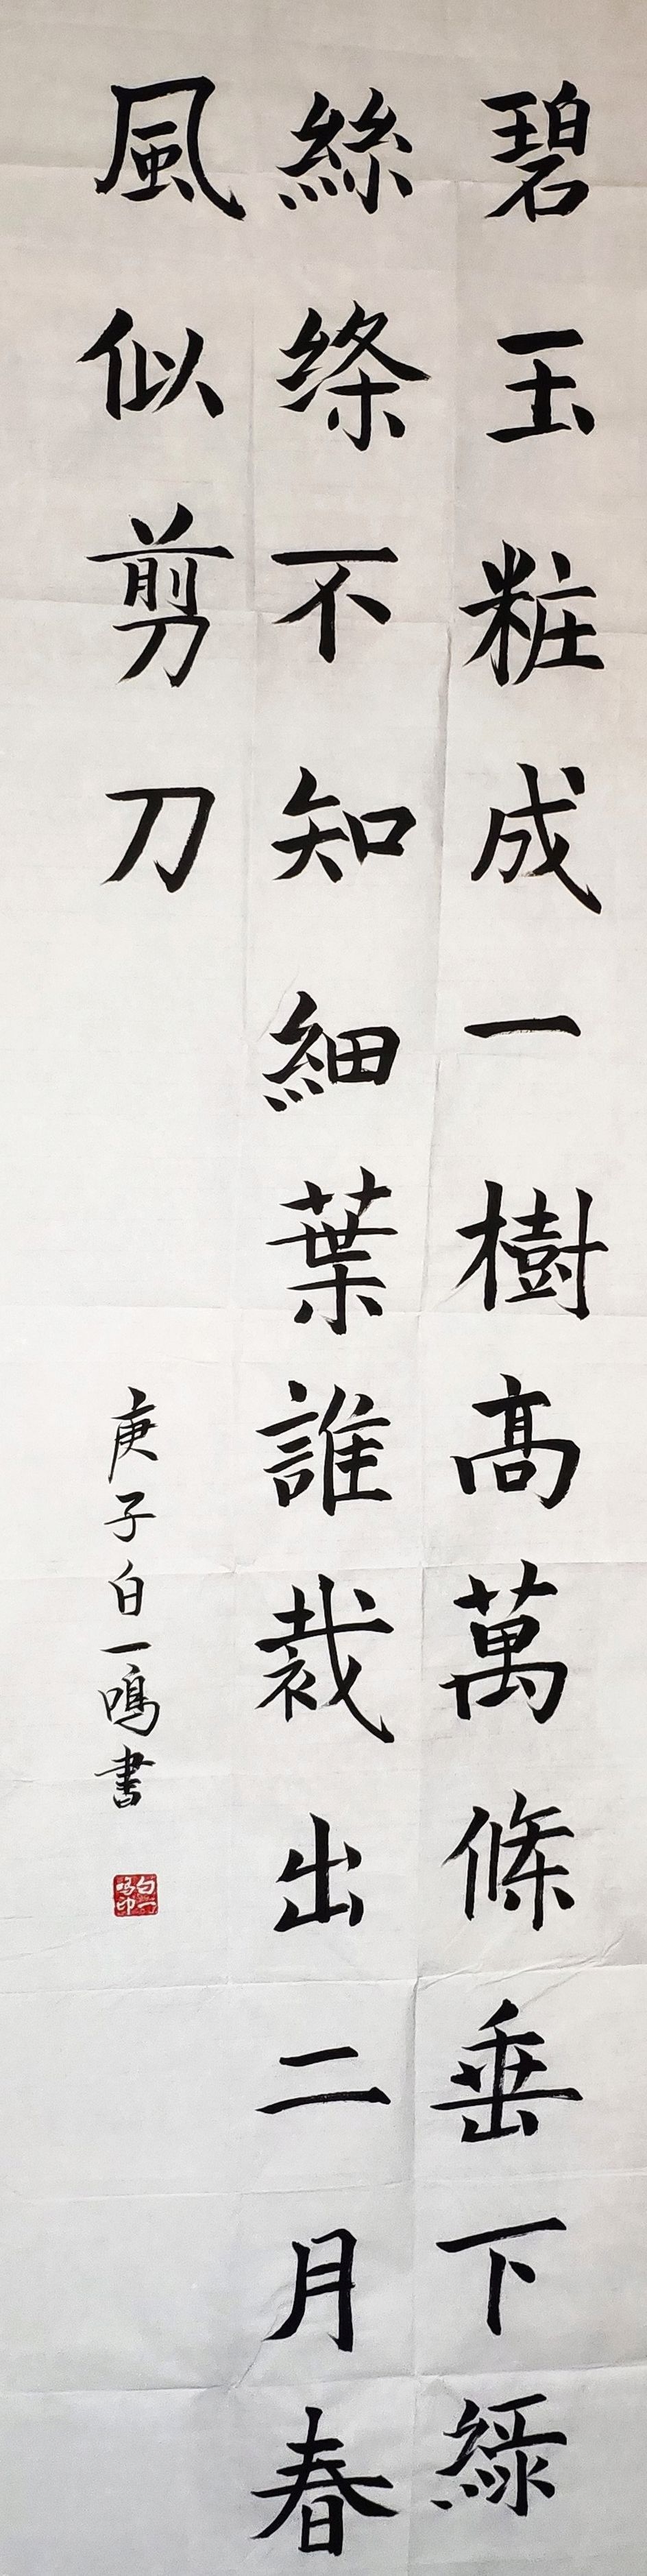 碧玉粧成一樹高萬條垂下綠
絲絛不知細葉誰裁出二月春
風似剪刀
庚子白一鳴書
白一鳴印